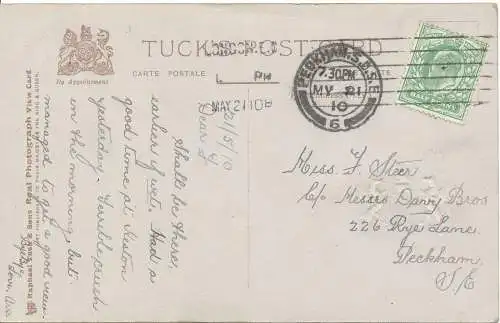 TUCK'S POST CARD
CARTE POSTALE
By Appointment
Raphael Tuck & Sons Real Photograph View Card
LONDON
PM
MAY 21 10
PECKHAM S.O.S.E
7.30PM
MY 21
10
6
21/5/10
Dear F
Shall be there,
earlier if wet. Had a
good time at
yesterday. Terrible crush
in the morning, but
managed to get a good view.
Miss. F. Steer
C/o Messrs Danvy Bros
226 Rye Lane.
Peckham.
S.E